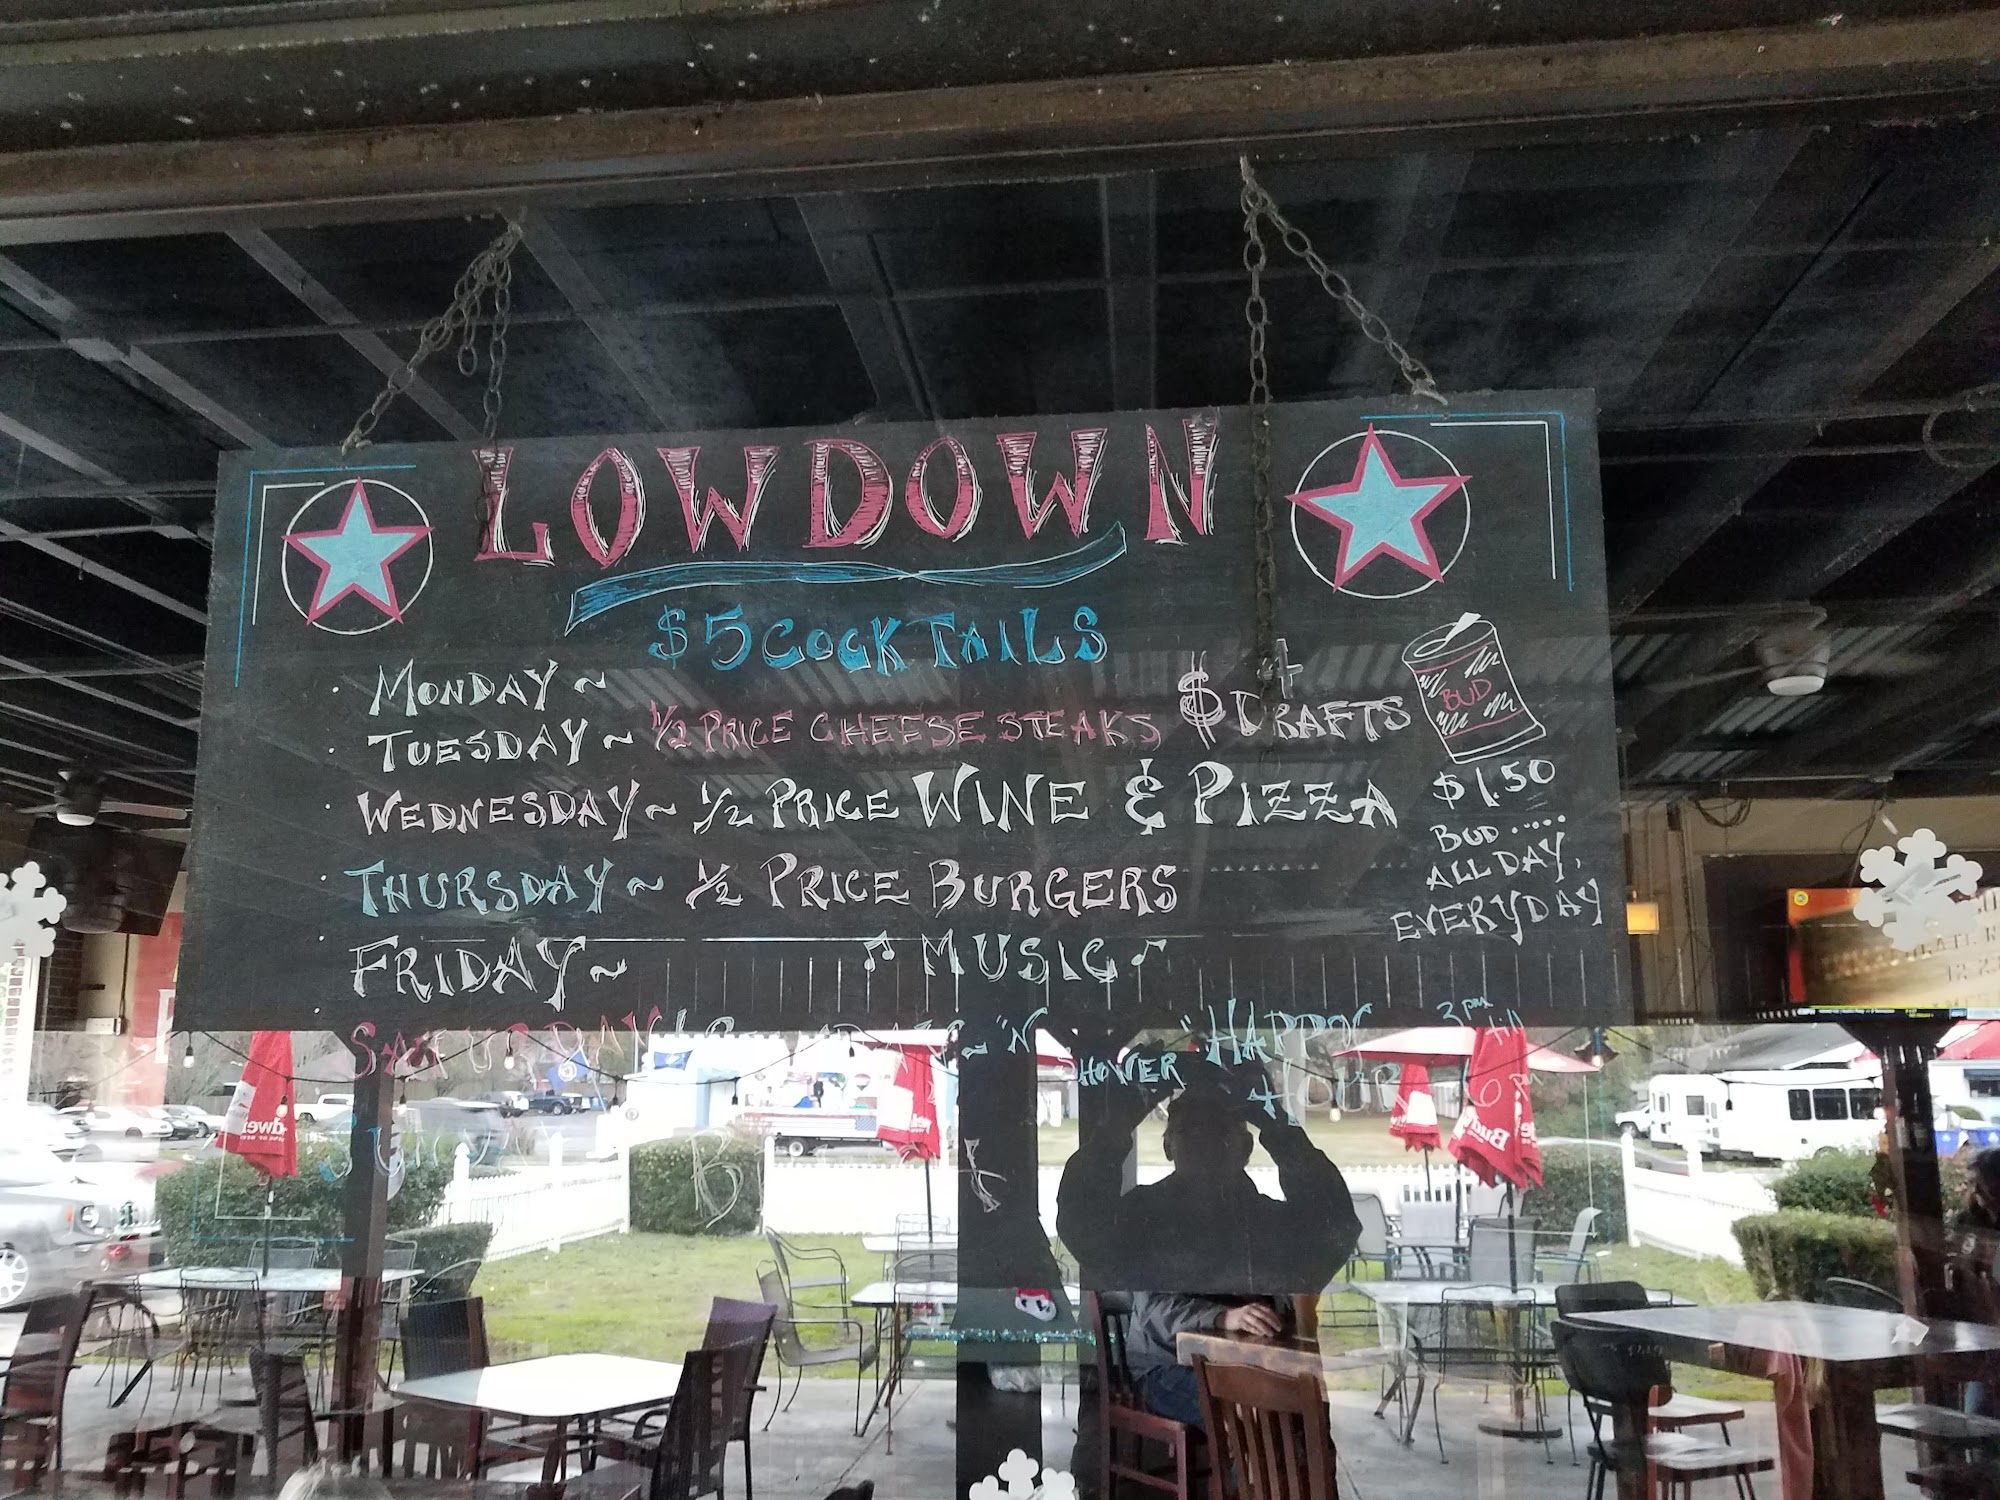 LOWDOWN
$5 COCKTAILS
MONDAY ~
TUESDAY ~ 1/2 PRICE CHEESE STEAKS + $ DRAFTS
WEDNESDAY ~ 1/2 PRICE WINE & PIZZA
THURSDAY ~ 1/2 PRICE BURGERS
FRIDAY ~ MUSIC
SATURDAY
"N SHOWER"
HAPPY HOUR
3 pm till 6 pm
BUD
$1.50
BUD.....
ALL DAY,
EVERYDAY